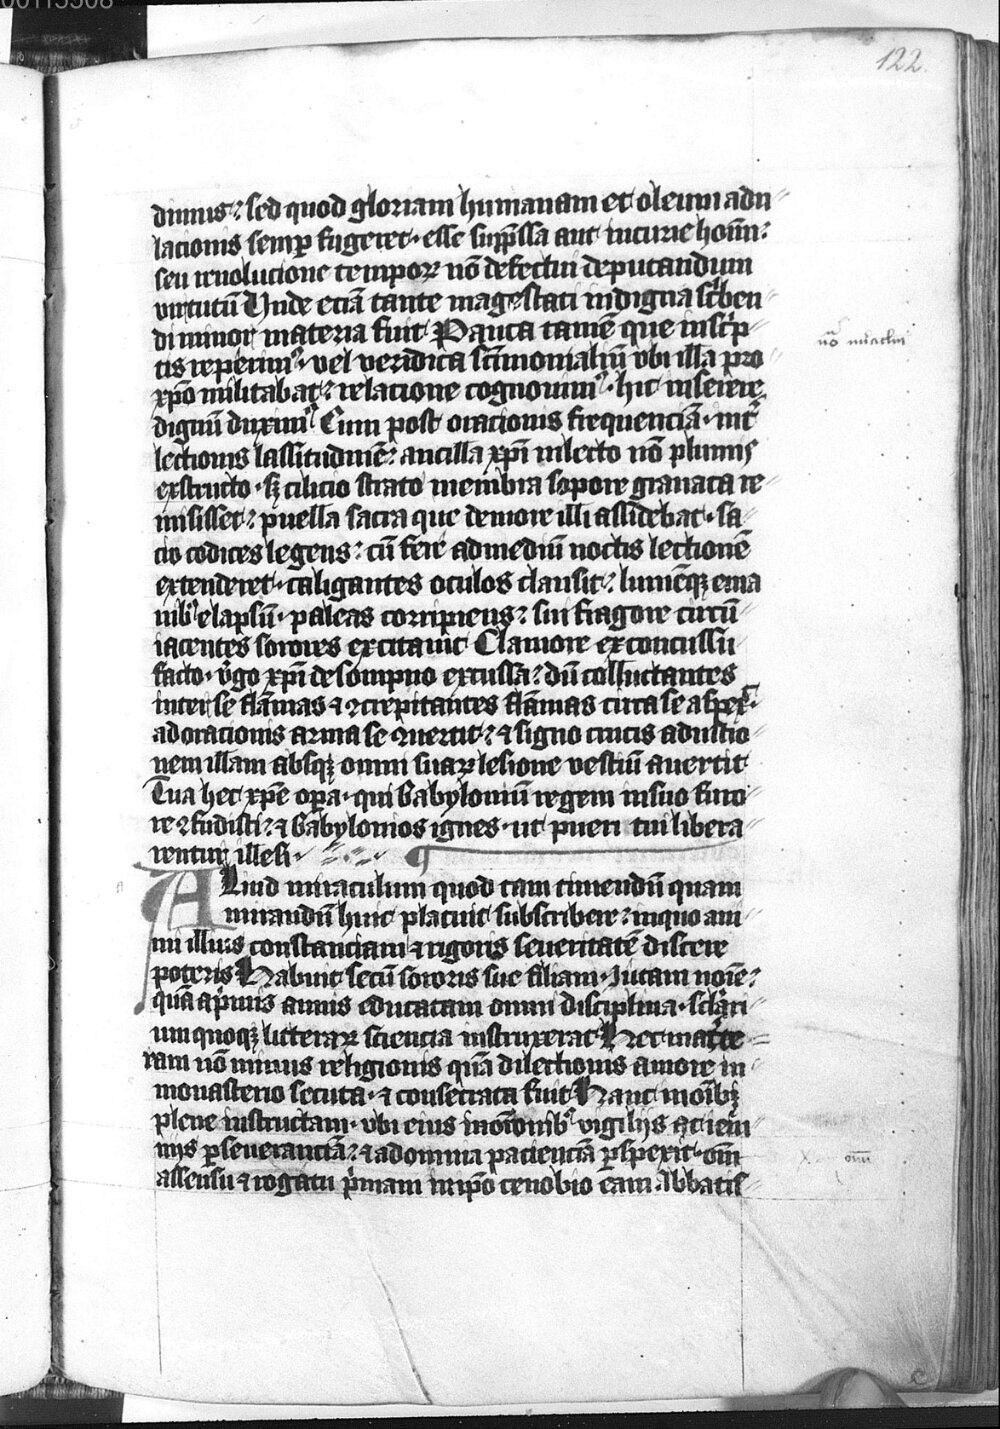 00115508
122.
diuinis: sed quod gloriam humanam et oleum adu
lacionis semp fugeret · esse supp̄ssa aut incurie hoīm:
seu reuolucione tempoꝝ nō defectui deputandum
virtutū Vnde eciā tante magestati indigna sc̄ben
di minor materia fuit Pauca tamē que in sc̄p
tis reperimꝰ · vel veridica sc̄timonialiū vbi illa pro
xp̄o militabat: relatione cognouimꝰ · hic inserere
dignū duximꝰ Cum post oracionis frequenciā · int̄
lectionis lassitudinē: ancilla xp̄i in lecto nō plumis
exstructo · sꝫ cilicio strato membra sopore grauata re
misisset: puella sacra que de more illi assidebat · sa
cio codices legens: cū fere ad mediū noctis lectionē
extenderet · caligantes oculos clausit: lumēqꝫ e ma
nibꝰ elapsū · paleas corripiens: sui fragore circū
iacentes sorores excitauit Clamore ex concussu
facto · v̄go xp̄i de sompno excussa: dū colluctantes
inter se flāmas ⁊ ꝯcrepitantes flāmas circa se aspex̄ ·
ad oracionis arma se ꝯuertit: ⁊ signo crucis adustio
nem illam absqꝫ omni suaꝝ lesione vestiū auertit
Tua hec xp̄e opa · qui Babyloniū regem in suo furo
re ꝯfudisti: ⁊ Babylonios ignes · ut pueri tui libera
rentur illesi ·
Aliud miraculum quod tam timendū quam
mirandū huic placuit subscribere: in quo ani
mi illius constanciam ⁊ rigoris seueritatē discere
poteris Habuit secū sororis sue filiam · Jutam noīe:
quā a p̄mis annis educatam omni disciplina · sc̄lari
um quoqꝫ litteraꝝ sciencia instruxerat Hec mat̄te
ram nō minus religionis quā dilectionis amore in
monasterio secuta · ⁊ consecrata fuit Hanc moībꝫ
plene instructam · vbi eius in oronibꝰ vigilijs ac ieiu
nijs pseueranciā: ⁊ ad omnia pacienciā pspexit · om̄
assensu ⁊ rogatu p̄mam in ip̄o cenobio eam Abbatis